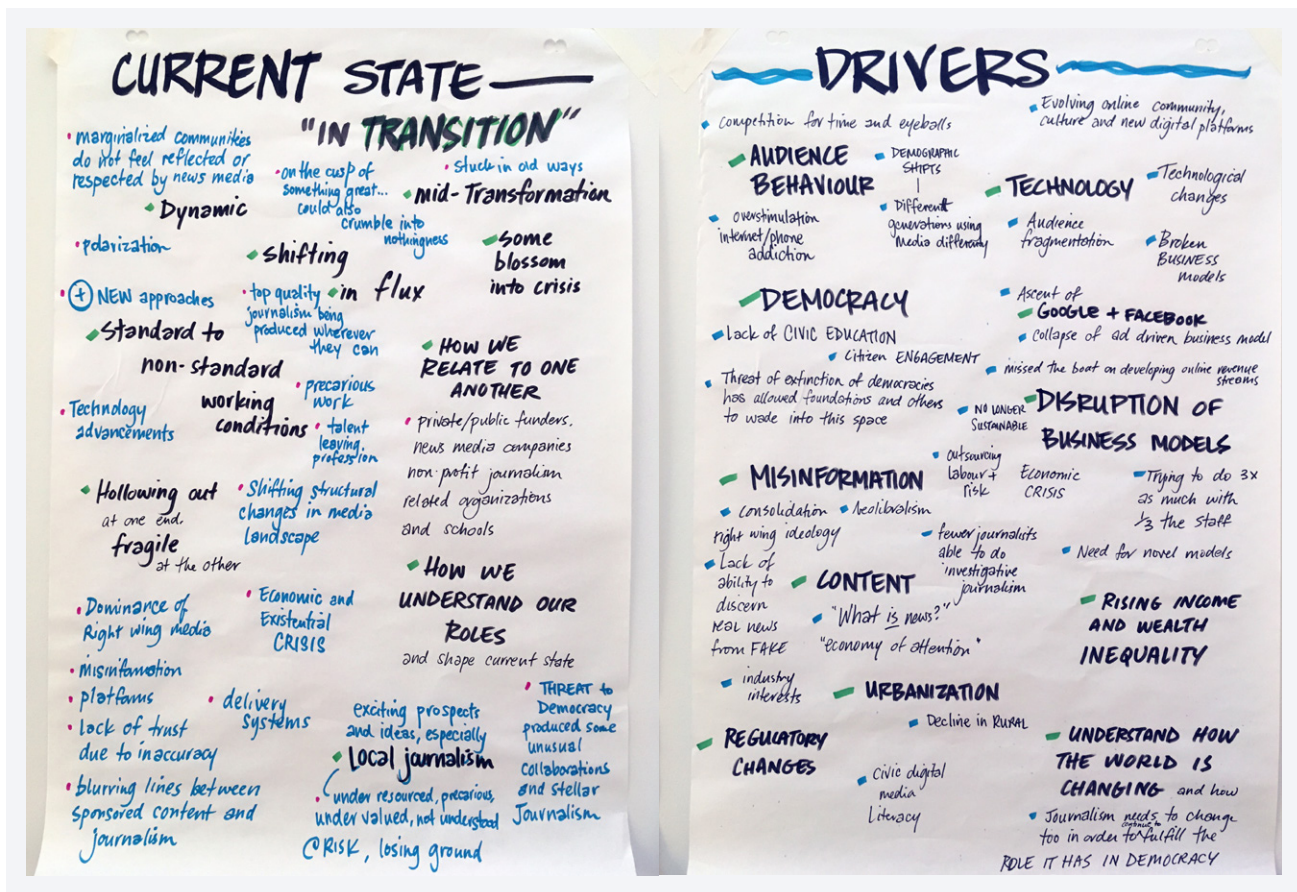 CURRENT STATE
"IN TRANSITION"
• marginalized communities
do not feel reflected or
respected by news media
• on the cusp of
something great...
could also
crumble into
nothingness
• Stuck in old ways
• mid-Transformation
• Dynamic
• polarization
• Shifting
• some
blossom
into crisis
• + NEW approaches
• top quality
journalism being
produced wherever
they can
• in flux
• Standard to
non-standard
working
conditions
• precarious
work
• talent
leaving
profession
• Technology
advancements
• HOW WE
RELATE TO ONE
ANOTHER
• private/public funders,
news media companies
non-profit journalism
related organizations
and schools
• Hollowing out
at one end,
fragile
at the other
• Shifting structural
changes in media
landscape
• HOW WE
UNDERSTAND OUR
ROLES
and shape current state
• Dominance of
Right wing media
• Economic and
Existential
CRISIS
• misinfomation
• platfoms
• delivery
systems
• Lack of trust
due to inaccuracy
• blurring lines between
sponsored content and
journalism
exciting prospects
and ideas, especially
• Local journalism
• under resourced, precarious,
under valued, not understood
@RISK, losing ground
• THREAT to
Democracy
produced some
unusual
collaborations
and stellar
Journalism
DRIVERS
• competition for time and eyeballs
• Evolving online community,
culture and new digital platforms
AUDIENCE
BEHAVIOUR
• DEMOGRAPHIC
SHIFTS
• Different
generations using
Media differently
• overstimulation
internet/phone
addiction
TECHNOLOGY
• Technological
changes
• Audience
fragmentation
• Broken
BUSINESS
models
DEMOCRACY
• Lack of CIVIC EDUCATION
• Citizen ENGAGEMENT
• Threat of extinction of democracies
has allowed foundations and others
to wade into this space
• Ascent of
GOOGLE + FACEBOOK
• collapse of ad driven business model
• missed the boat on developing online revenue
streams
• NO LONGER
SUSTAINABLE
DISRUPTION OF
BUSINESS MODELS
• outsourcing
labour +
risk
Economic
CRISIS
• Trying to do 3x
as much with
1/3 the staff
• Need for novel models
MISINFORMATION
• consolidation • Neoliberalism
right wing ideology
• Lack of
ability to
discern
real news
from FAKE
• fewer journalists
able to do
investigative
journalism
CONTENT
• "What is news?"
"economy of attention"
• industry
interests
RISING INCOME
AND WEALTH
INEQUALITY
URBANIZATION
• Decline in RURAL
REGULATORY
CHANGES
• Civic digital
media
Literacy
UNDERSTAND HOW
THE WORLD IS
CHANGING and how
• Journalism needs to change
too in order to continue to fulfill the
ROLE IT HAS IN DEMOCRACY